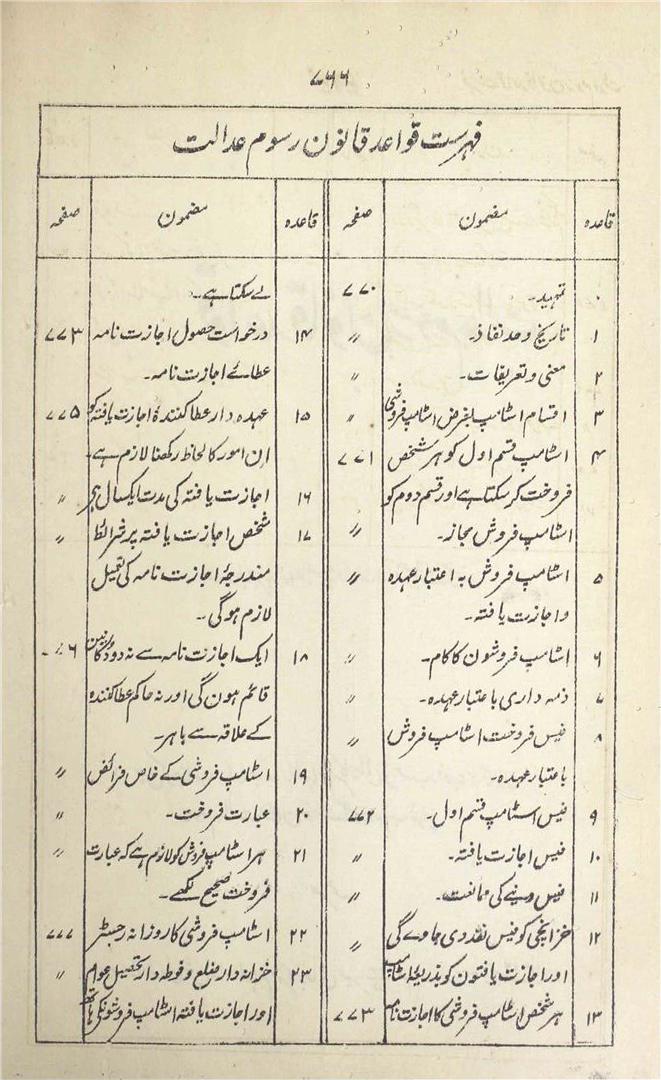 ۷۶۶
فہرست قواعد قانون رسوم عدالت
قاعدہ مضمون صفحہ
۰ تمہید۔ ۷۷۰
۱ تاریخ و حد نفاذ۔ 〃
۲ معنی و تعریفات۔ 〃
۳ اقسام اسٹامپ بغرض اسٹامپ فروشی 〃
۴ اسٹامپ قسم اول کو ہر شخص ۷۷۱
فروخت کر سکتا ہے اور قسم دوم کو
اسٹامپ فروش مجاز۔ 〃
۵ اسٹامپ فروش بہ اعتبار عہدہ 〃
و اجازت یافتہ۔
۶ اسٹامپ فروشون کا کام۔ 〃
۷ ذمہ داری باعتبار عہدہ۔ 〃
۸ فیس فروخت اسٹامپ فروش 〃
باعتبار عہدہ۔
۹ فیس اسٹامپ قسم اول۔ ۷۷۲
۱۰ فیس اجازت یافتہ۔ 〃
۱۱ فیس دینے کی ممانعت۔ 〃
۱۲ خزانچی کو فیس نقد دی جاوے گی 〃
اور اجازت یافتون کو بذریعہ اسٹامپ
۱۳ ہر شخص اسٹامپ فروشی کا اجازت نامہ ۷۷۳
قاعدہ مضمون صفحہ
لے سکتا ہے۔
۱۴ درخواست حصول اجازت نامہ ۷۷۳
عطائے اجازت نامہ۔
۱۵ عہدہ دار عطا کنندۂ اجازت یافتہ کو ۷۷۵
ان امور کا لحاظ رکھنا لازم ہے۔
۱۶ اجازت یافتہ کی مدت ایکسال ہے 〃
۱۷ شخص اجازت یافتہ پر شرائط 〃
مندرجۂ اجازت نامہ کی تعمیل
لازم ہوگی۔
۱۸ ایک اجازت نامہ سے نہ دو دکانین
قائم ہون گی اور نہ حاکم عطا کنندہ
کے علاقہ سے باہر۔
۱۹ اسٹامپ فروشی کے خاص فرائض 〃
۲۰ عبارت فروخت۔ 〃
۲۱ ہر اسٹامپ فروش کو لازم ہے کہ عبارت 〃
فروخت صحیح لکھے۔
۲۲ اسٹامپ فروشی کا روزانہ رجسٹر ۷۷۷
۲۳ خزانہ دار ضلع و فوطہ دار تحصیل عوام 〃
اور اجازت یافتہ اسٹامپ فروشونکے ہاتھ